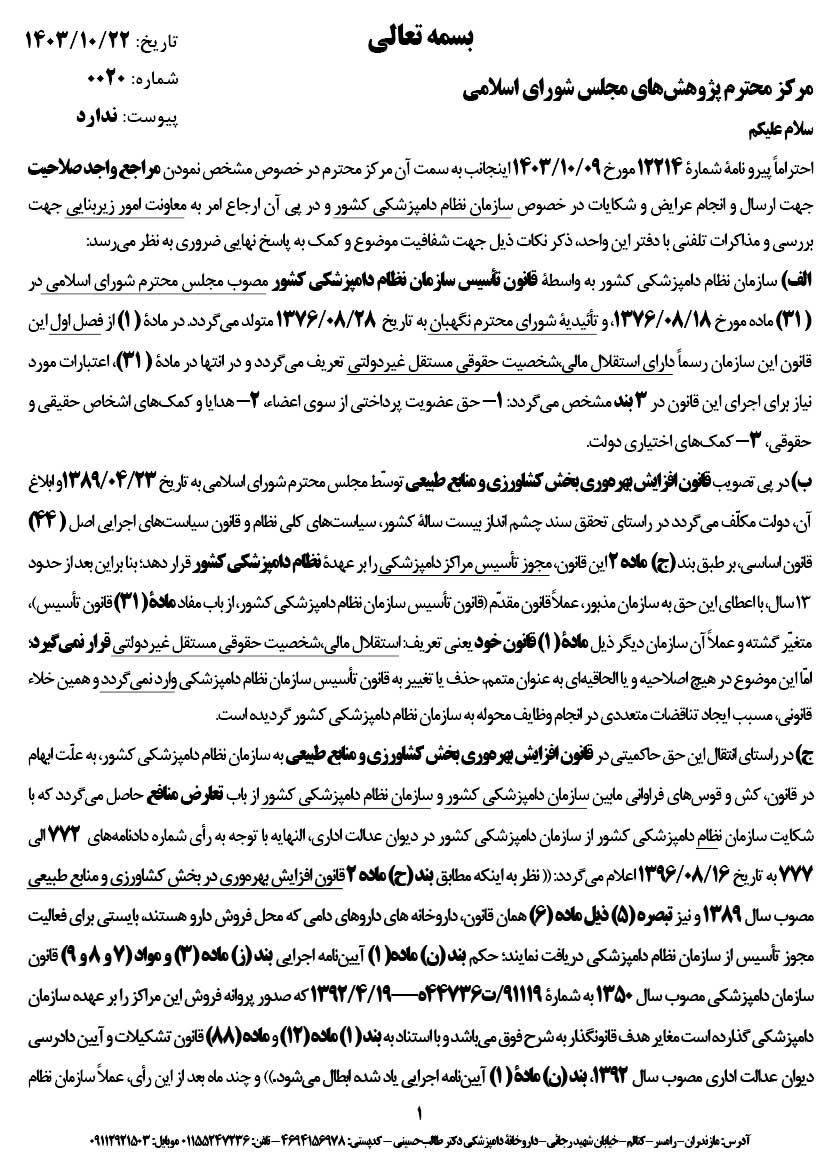 بسمه تعالی
تاریخ: ۱۴۰۳/۱۰/۲۲
شماره: ۰۰۲۰
پیوست: ندارد
مرکز محترم پژوهش‌های مجلس شورای اسلامی
سلام علیکم
احتراماً پیرو نامهٔ شمارهٔ ۱۲۲۱۴ مورخ ۱۴۰۳/۱۰/۰۹ اینجانب به سمت آن مرکز محترم در خصوص مشخص نمودن مراجع واجد صلاحیت
جهت ارسال و انجام عرایض و شکایات در خصوص سازمان نظام دامپزشکی کشور و در پی آن ارجاع امر به معاونت امور زیربنایی جهت
بررسی و مذاکرات تلفنی با دفتر این واحد، ذکر نکات ذیل جهت شفافیت موضوع و کمک به پاسخ نهایی ضروری به نظر می‌رسد:
الف) سازمان نظام دامپزشکی کشور به واسطهٔ قانون تأسیس سازمان نظام دامپزشکی کشور مصوب مجلس محترم شورای اسلامی در
(۳۱) ماده مورخ ۱۳۷۶/۰۸/۱۸، و تأئیدیهٔ شورای محترم نگهبان به تاریخ ۱۳۷۶/۰۸/۲۸ متولد می‌گردد. در مادهٔ (۱) از فصل اول این
قانون این سازمان رسماً دارای استقلال مالی،شخصیت حقوقی مستقل غیردولتی تعریف می‌گردد و در انتها در مادهٔ (۳۱)، اعتبارات مورد
نیاز برای اجرای این قانون در ۳ بند مشخص می‌گردد: ۱– حق عضویت پرداختی از سوی اعضاء، ۲– هدایا و کمک‌های اشخاص حقیقی و
حقوقی، ۳– کمک‌های اختیاری دولت.
ب) در پی تصویب قانون افزایش بهره‌وری بخش کشاورزی و منابع طبیعی توسّط مجلس محترم شورای اسلامی به تاریخ ۱۳۸۹/۰۴/۲۳و ابلاغ
آن، دولت مکلّف می‌گردد در راستای تحقق سند چشم انداز بیست سالهٔ کشور، سیاست‌های کلی نظام و قانون سیاست‌های اجرایی اصل (۴۴)
قانون اساسی، بر طبق بند (ج) ماده ۲ این قانون، مجوز تأسیس مراکز دامپزشکی را بر عهدهٔ نظام دامپزشکی کشور قرار دهد؛ بنا براین بعد از حدود
۱۳سال، با اعطای این حق به سازمان مذبور، عملاً قانون مقدّم (قانون تأسیس سازمان نظام دامپزشکی کشور، از باب مفاد مادهٔ (۳۱) قانون تأسیس)،
متغیّر گشته و عملاً آن سازمان دیگر ذیل مادهٔ (۱) قانون خود یعنی تعریف: استقلال مالی،شخصیت حقوقی مستقل غیردولتی قرار نمی‌گیرد؛
امّا این موضوع در هیچ اصلاحیه و یا الحاقیه‌ای به عنوان متمم، حذف یا تغییر به قانون تأسیس سازمان نظام دامپزشکی وارد نمی‌گردد و همین خلاء
قانونی، مسبب ایجاد تناقضات متعددی در انجام وظایف محوله به سازمان نظام دامپزشکی کشور گردیده است.
ج) در راستای انتقال این حق حاکمیتی در قانون افزایش بهره‌وری بخش کشاورزی و منابع طبیعی به سازمان نظام دامپزشکی کشور، به علّت ابهام
در قانون، کش و قوس‌های فراوانی مابین سازمان دامپزشکی کشور و سازمان نظام دامپزشکی کشور از باب تعارض منافع حاصل می‌گردد که با
شکایت سازمان نظام دامپزشکی کشور از سازمان دامپزشکی کشور در دیوان عدالت اداری، النهایه با توجه به رأی شماره دادنامه‌های ۷۷۲ الی
۷۷۷ به تاریخ ۱۳۹۶/۰۸/۱۶ اعلام می‌گردد: (( نظر به اینکه مطابق بند (ح) ماده ۲ قانون افزایش بهره‌وری در بخش کشاورزی و منابع طبیعی
مصوب سال ۱۳۸۹ و نیز تبصره (۵) ذیل ماده (۶) همان قانون، داروخانه های داروهای دامی که محل فروش دارو هستند، بایستی برای فعالیت
مجوز تأسیس از سازمان نظام دامپزشکی دریافت نمایند؛ حکم بند (ن) ماده (۱) آیین‌نامه اجرایی بند (ز) ماده (۳) و مواد (۷ و ۸ و ۹) قانون
سازمان دامپزشکی مصوب سال ۱۳۵۰ به شمارهٔ ۹۱۱۱۹/ت۴۴۷۳۶ه——۱۳۹۲/۴/۱۹ که صدور پروانه فروش این مراکز را بر عهده سازمان
دامپزشکی گذارده است مغایر هدف قانونگذار به شرح فوق می‌باشد و با استناد به بند (۱) ماده (۱۲) و ماده (۸۸) قانون تشکیلات و آیین دادرسی
دیوان عدالت اداری مصوب سال ۱۳۹۲، بند (ن) مادهٔ (۱) آیین‌نامه اجرایی یاد شده ابطال می‌شود.)) و چند ماه بعد از این رأی، عملاً سازمان نظام
۱
آدرس: مازندران–رامسر–کتالم–خیابان شهید رجائی–داروخانهٔ دامپزشکی دکتر طالب‌حسینی – کدپستی: ۴۶۹۴۱۵۶۹۷۸ – تلفن: ۰۱۱۵۵۲۴۷۲۳۶ موبایل: ۰۹۱۱۲۹۲۱۵۰۳